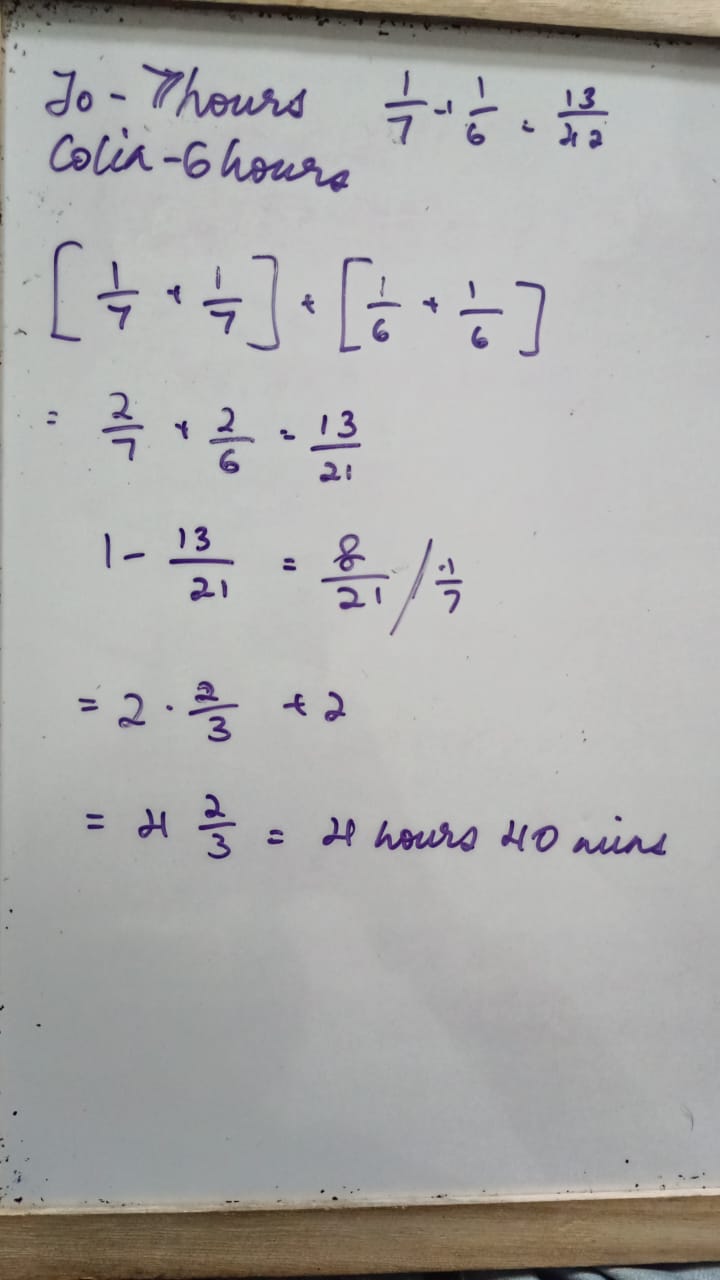 Jo - 7 hours 1/7 + 1/6 = 13/42
Colin - 6 hours
[1/7 + 1/7] + [1/6 + 1/6]
= 2/7 + 2/6 = 13/21
1 - 13/21 = 8/21 / 1/7
= 2 · 2/3 + 2
= 4 2/3 = 4 hours 40 mins